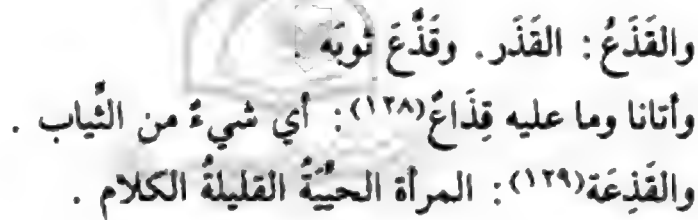 والقَذَعُ : القَذَر . وقَذَّعَ ثوبَه .
وأتانا وما عليه قِذَاعٌ(١٢٨) : أي شيءٌ من الثِّياب .
والقَذِعَة(١٢٩) : المرأة الحيِيَّةُ القليلةُ الكلام .